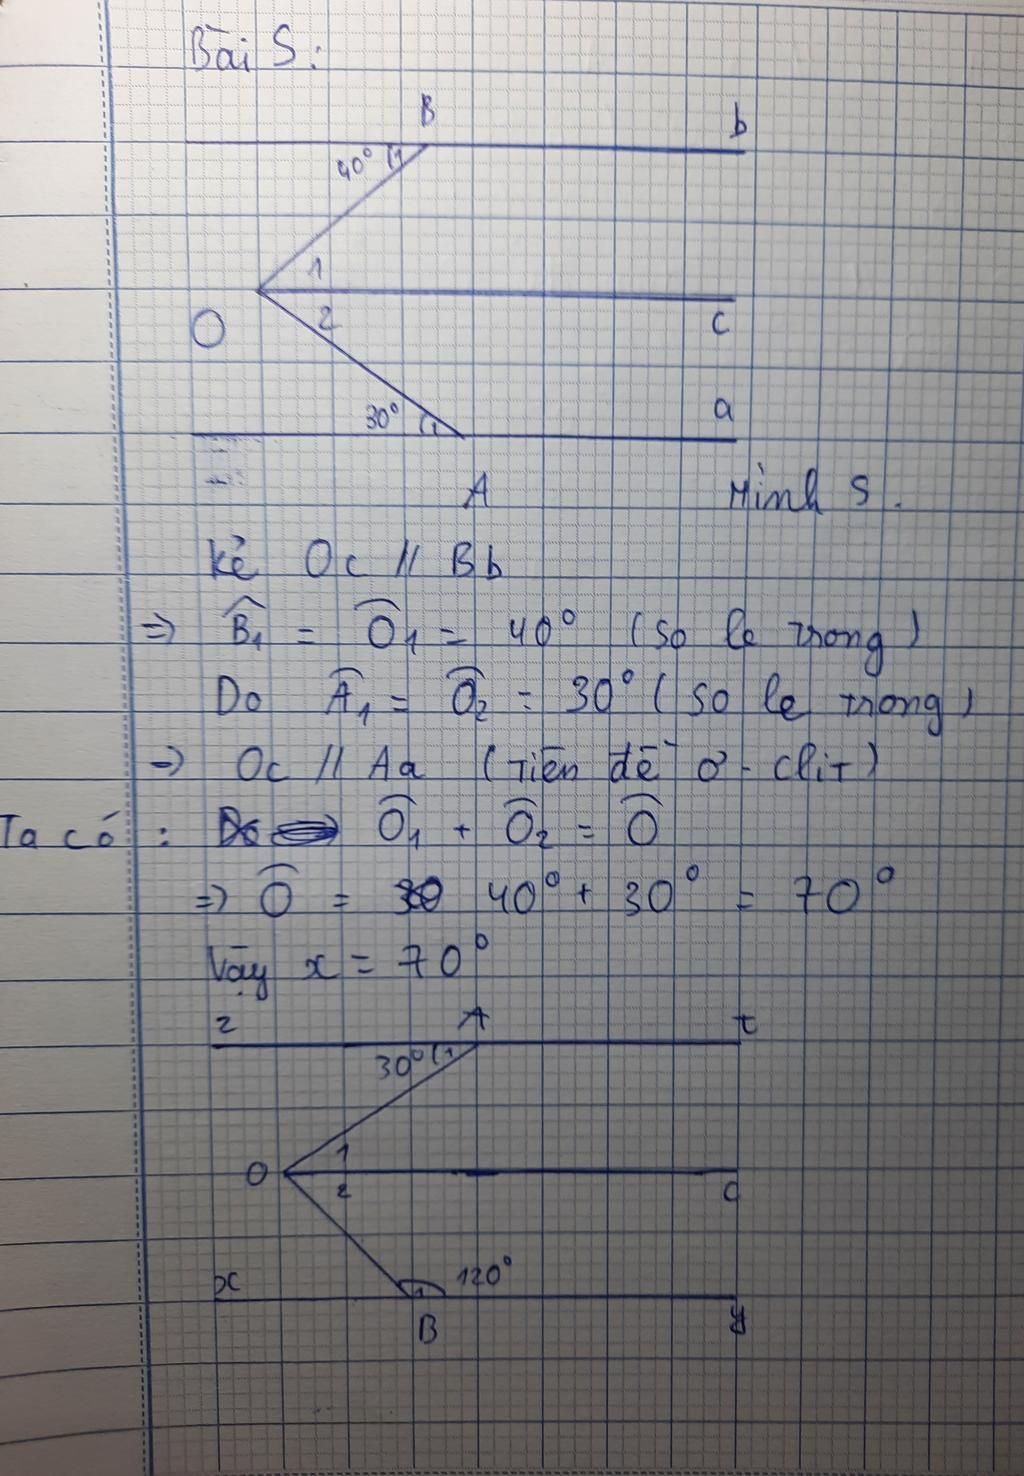 Bài 5:
B b
40° 1
1
2
O c
30° 1 a
A Hình 5.
Kẻ Oc // Bb
=> B̂₁ = Ô₁ = 40° (so le trong)
Do Â₁ = Ô₂ = 30° (so le trong)
=> Oc // Aa (Tiên đề Ơ-clit)
Ta có: Ô₁ + Ô₂ = Ô
=> Ô = 40° + 30° = 70°
Vậy x = 70°
z A t
30° 1
O 1
2 c
x 1 120°
B y